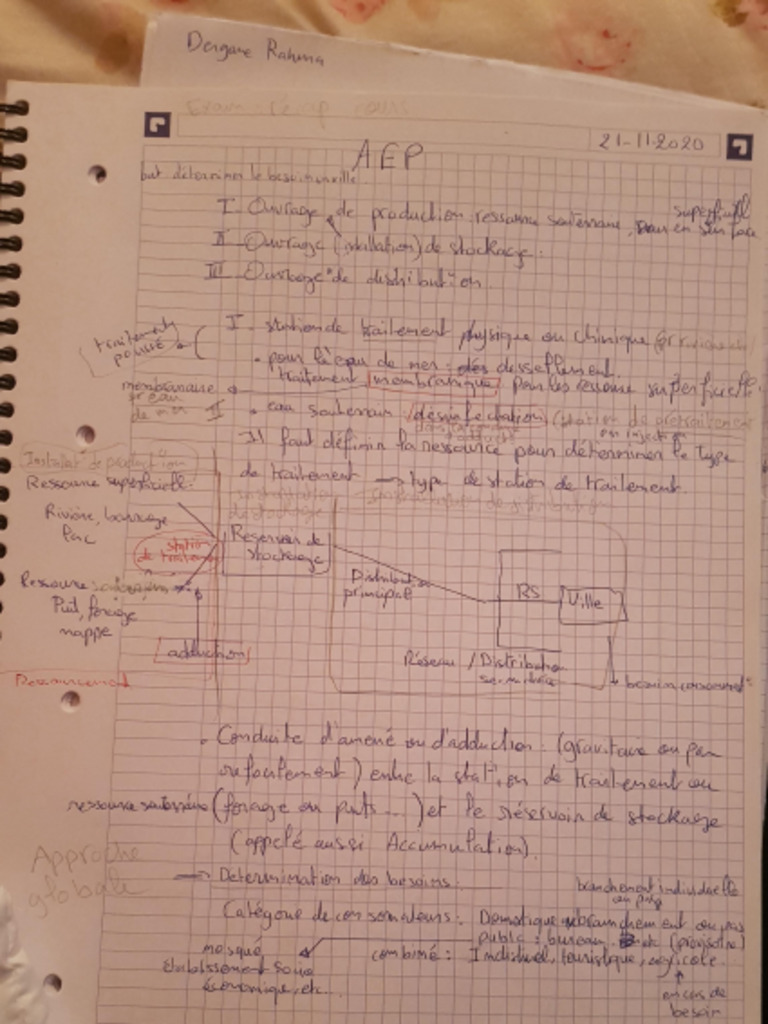 Dergane Rahma
Exam - Récap cours
21-11-2020
AEP
but déterminer le besoin en ville
superficiel
I Ouvrage de production ressource souterraine, ou en surface
II Ouvrage (instillation) de stockage.
III Ouvrage de distribution.
I. station de traitement physique ou chimique
traitement poussé
• pour l'eau de mer : dessellement.
traitement membranique pour les ressource superficielle.
membranaire
de mer
II • eau souterrain désinfectation (station de prétraitement
ou injection
Il faut définir la ressource pour déterminer le type
de traitement → type de station de traitement.
Installat° de production
Ressource superficielle.
Rivière, barrage
lac
station de traitement
Reservoir de stockage
Ressource souterraine
Puit, forage
nappe
adduction
Distribut° principale
RS
Ville
Réseau / Distribution
besoin consommat°
• Conduite d'amené ou d'adduction : (gravitaire ou par
refoulement) entre la station de traitement ou
ressource souterraine (forage ou puits...) et le réservoir de stockage
(appelé aussi Accumulation).
Approche globale
→ Determination des besoins :
branchement individuelle
Catégorie de consomateurs : Domestique branchement ou pas
public : bureau
mosqué
établissement socio
économique, etc...
combiné : Industriel, touristique, agricole.
en cas de
besoin